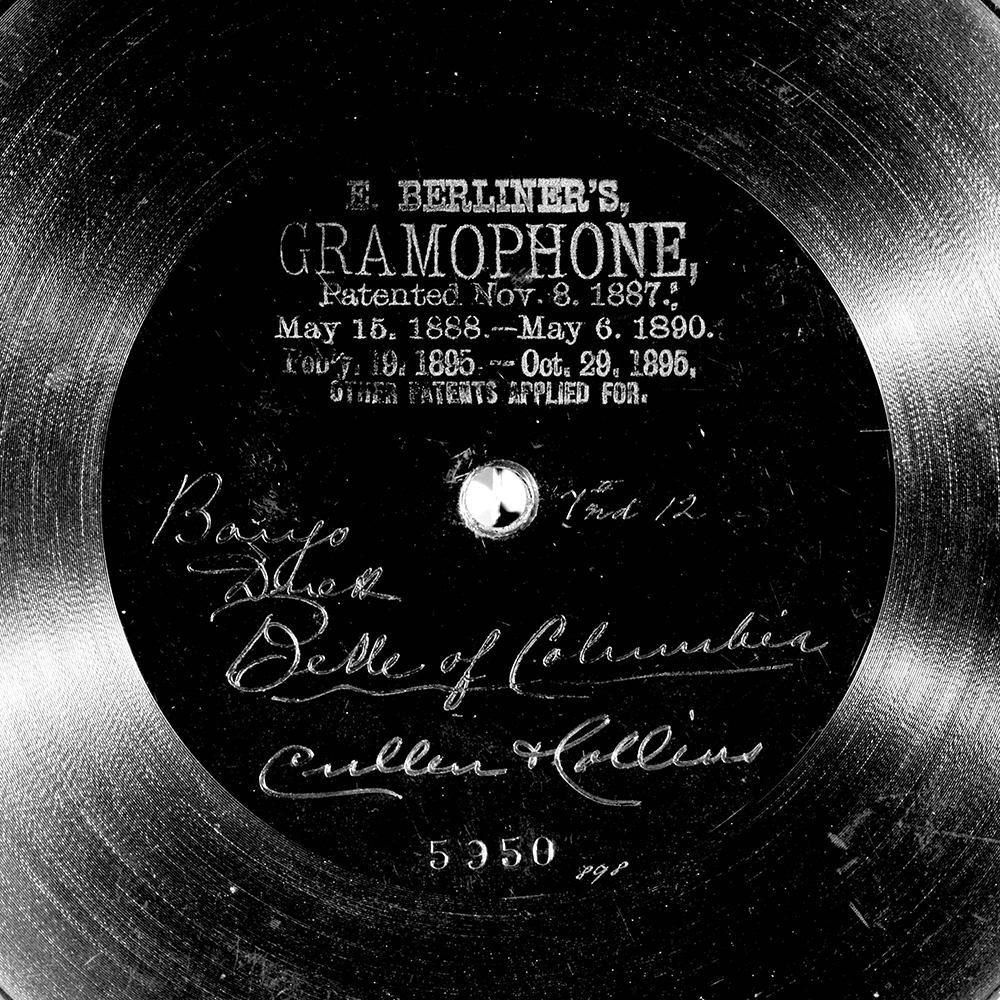 E. BERLINER'S,
GRAMOPHONE,
Patented Nov. 8. 1887.
May 15. 1888.—May 6. 1890.
Feb'y. 19. 1895.—Oct. 29. 1895.
OTHER PATENTS APPLIED FOR.
12
Banjo
Duett
Belle of Columbia
Cullen & Collins
5950
898